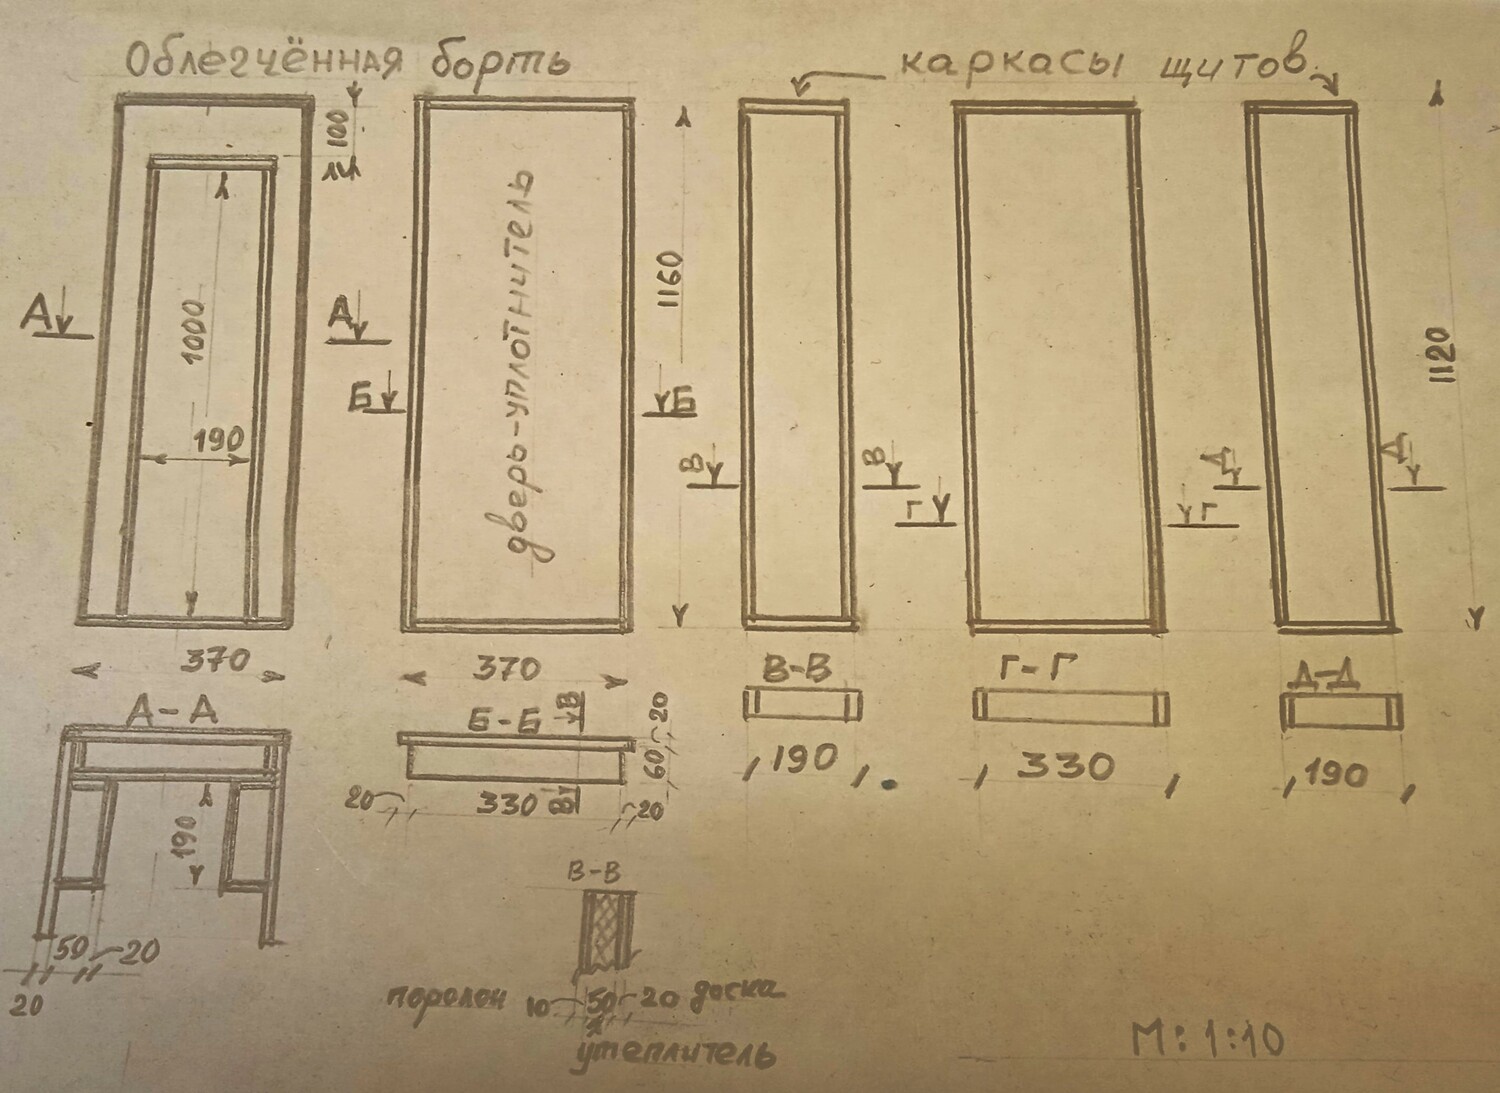 Облегчённая борть
каркасы щитов
100
1000
190
А
А
Б
Б
дверь-уплотнитель
1160
В
В
Г
Г
Д
Д
1120
370
370
А-А
Б-Б
В
В
20
60
20
330
20
В-В
190
Г-Г
330
Д-Д
190
190
50
20
20
В-В
поролон 10 50 20 доска
утеплитель
М: 1:10